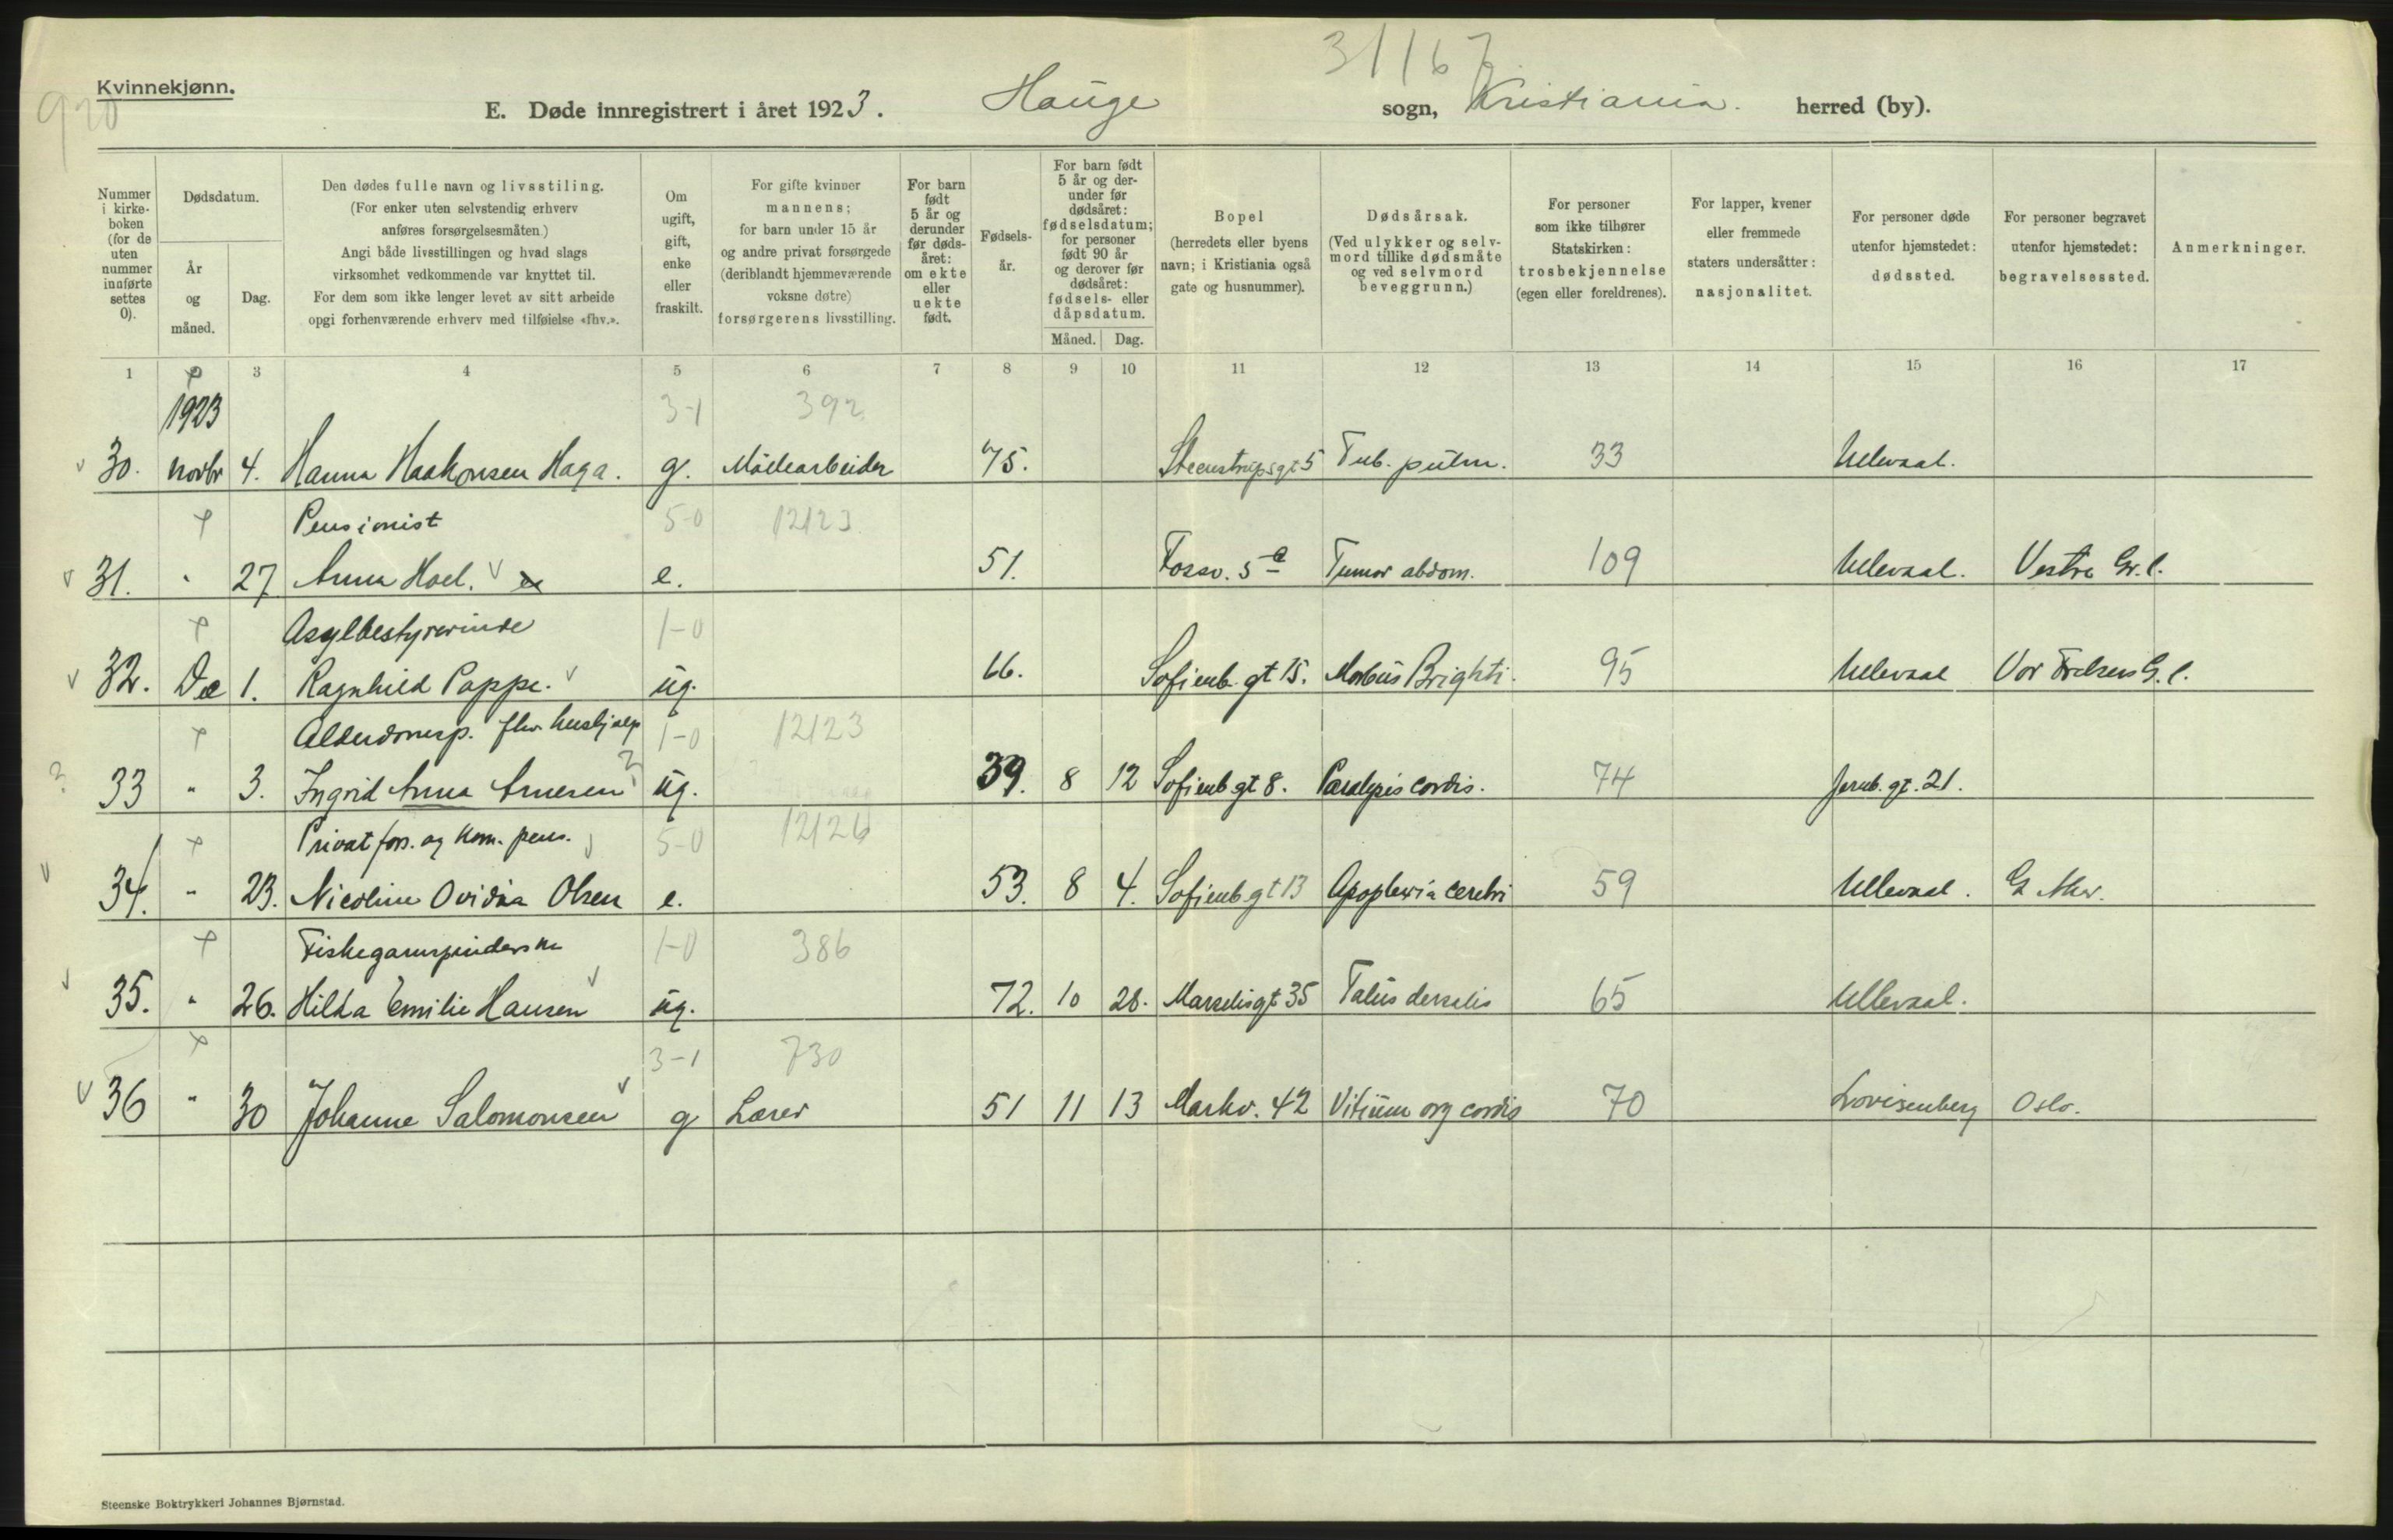 31167
920
Kvinnekjønn.
E. Døde innregistrert i året 1923. Hauge sogn, Kristiania. herred (by).
Nummer i kirkeboken (for de uten nummer innførte settes 0).
Dødsdatum.
År og måned.
Dag.
Den dødes fulle navn og livsstiling.
(For enker uten selvstendig erhverv
anføres forsørgelsesmåten.)
Angi både livsstillingen og hvad slags
virksomhet vedkommende var knyttet til.
For dem som ikke lenger levet av sitt arbeide
opgi forhenværende erhverv med tilføielse «fhv.».
Om ugift, gift, enke eller fraskilt.
For gifte kvinner
mannens;
for barn under 15 år
og andre privat forsørgede
(deriblandt hjemmeværende
voksne døtre)
forsørgerens livsstilling.
For barn født 5 år og derunder før dødsåret: om ekte eller uekte født.
Fødselsår.
For barn født 5 år og derunder før dødsåret: fødselsdatum; for personer født 90 år og derover før dødsåret: fødsels- eller dåpsdatum.
Måned. Dag.
Bopel
(herredets eller byens
navn; i Kristiania også
gate og husnummer).
Dødsårsak.
(Ved ulykker og selvmord tillike dødsmåte og ved selvmord beveggrunn.)
For personer
som ikke tilhører
Statskirken:
trosbekjennelse
(egen eller foreldrenes).
For lapper, kvener
eller fremmede
staters undersåtter:
nasjonalitet.
For personer døde
utenfor hjemstedet:
dødssted.
For personer begravet
utenfor hjemstedet:
begravelsessted.
Anmerkninger.
1 2 3 4 5 6 7 8 9 10 11 12 13 14 15 16 17
1923 3-1 392
30. novbr 4. Hanna Haakonsen Haga. g. Møllearbeider 75. Steenstrupsgt 5 Tub. pulm. 33 Ullevaal.
Pensionist 5-0 12123
31. " 27 Anna Hoel. e. 51. Fossv. 5 c Tumor abdom. 109 Ullevaal. Vestre Gr. l.
Asylbestyrerinde 1-0
32. De 1. Ragnhild Poppe. ug. 66. Sofienb. gt 15. Morbus Brighti. 95 Ullevaal Vor Frelsers G. l.
Alderdomsp. fhv. hushjælp 1-0 12123
33 " 3. Ingrid Anna Arnesen ug. 39. 8 12 Sofienb gt 8. Paralysis cordis. 74 Jernb. gt. 21.
Privat fors. og kom. pens. 5-0 12126
34. " 23. Nicoline Ovidia Olsen e. 53. 8 4. Sofienb gt 13 Apoplexia cerebri 59 Ullevaal. G. Aker.
Fiskegarnspinderske 1-0 386
35. " 26. Hilda Emilie Hansen ug. 72. 10 28. Marselisgt 35 65 Ullevaal.
3-1 730
36 " 30 Johanne Salomonsen g Lærer 51 11 13 Markv. 42 Vitium org cordis 70 Lovisenberg Oslo.
Steenske Boktrykkeri Johannes Bjørnstad.